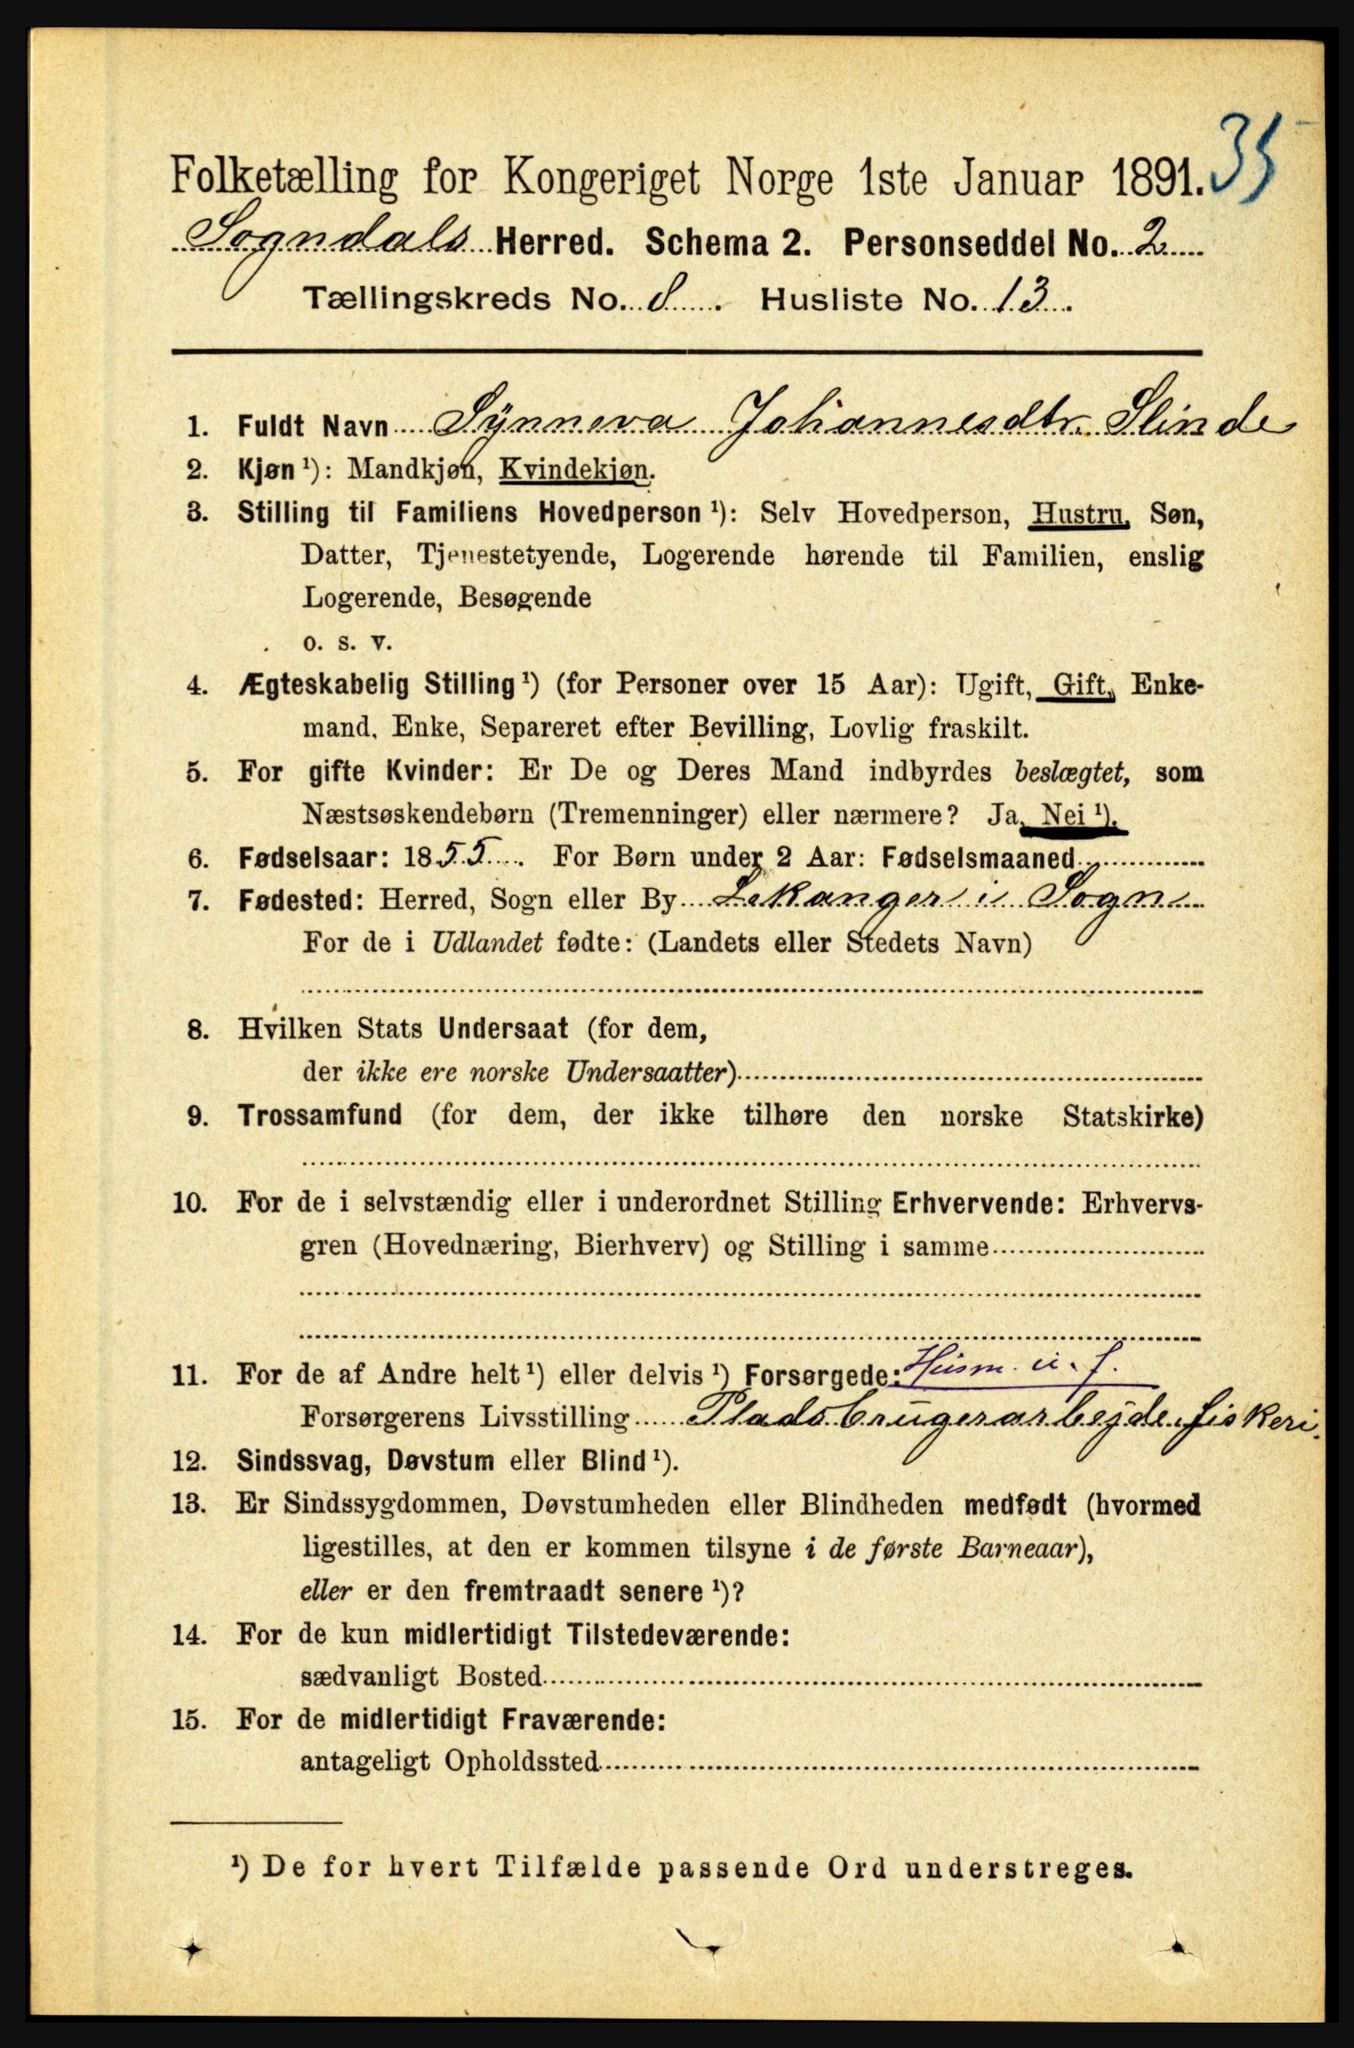 35
Folketælling for Kongeriget Norge 1ste Januar 1891.
Sogndals Herred. Schema 2. Personseddel No. 2
Tællingskreds No. 8. Husliste No. 13.
1. Fuldt Navn Synneva Johannesdtr. Slinde
2. Kjøn ¹): Mandkjøn, Kvindekjøn.
3. Stilling til Familiens Hovedperson ¹): Selv Hovedperson, Hustru, Søn,
Datter, Tjenestetyende, Logerende hørende til Familien, enslig
Logerende, Besøgende
o. s. v.
4. Ægteskabelig Stilling ¹) (for Personer over 15 Aar): Ugift, Gift, Enke-
mand, Enke, Separeret efter Bevilling, Lovlig fraskilt.
5. For gifte Kvinder: Er De og Deres Mand indbyrdes beslægtet, som
Næstsøskendebørn (Tremenninger) eller nærmere? Ja, Nei ¹).
6. Fødselsaar: 1855. For Børn under 2 Aar: Fødselsmaaned
7. Fødested: Herred, Sogn eller By Lekanger i Sogn
For de i Udlandet fødte: (Landets eller Stedets Navn)
8. Hvilken Stats Undersaat (for dem,
der ikke ere norske Undersaatter)
9. Trossamfund (for dem, der ikke tilhøre den norske Statskirke)
10. For de i selvstændig eller i underordnet Stilling Erhvervende: Erhvervs-
gren (Hovednæring, Bierhverv) og Stilling i samme
11. For de af Andre helt ¹) eller delvis ¹) Forsørgede: Husm. u. f.
Forsørgerens Livsstilling Pladsbrugerarbejde. fiskeri.
12. Sindssvag, Døvstum eller Blind ¹).
13. Er Sindssygdommen, Døvstumheden eller Blindheden medfødt (hvormed
ligestilles, at den er kommen tilsyne i de første Barneaar),
eller er den fremtraadt senere ¹)?
14. For de kun midlertidigt Tilstedeværende:
sædvanligt Bosted
15. For de midlertidigt Fraværende:
antageligt Opholdssted
¹) De for hvert Tilfælde passende Ord understreges.